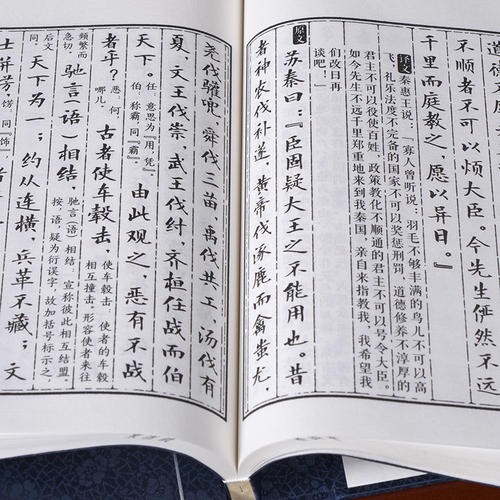 不顺者不可以烦大臣。今先生俨然不
千里而庭教之,愿以异日。』
译文 秦惠王说:『寡人曾听说:羽毛不够丰满的鸟儿不可以高
飞,礼乐法度不完备的国家不可以奖惩刑罚,道德修养不淳厚的
君主不可以役使百姓,政策教化不顺通的君主不可以号令大臣。
如今先生不远千里郑重地来到我秦国,亲自来指教我,我希望我
们改日再
谈吧!』
原文
苏秦曰:『臣固疑大王之不能用也。昔
者神农伐补遂,黄帝伐涿鹿而禽蚩尤,
尧伐驩兜,舜伐三苗,禹伐共工,汤伐有
夏,文王伐崇,武王伐纣,齐桓任战而伯
天下。
任,意思为『用,凭』
伯,称霸,同『霸』
由此观之,恶有不战
者乎?
恶,何,
哪儿。
古者使车毂击,
使车毂击:使者的车毂
相互撞击,形容使者来往
频繁而
急切。
驰言(语)相结,
驰言(语)相结:宣称彼此相互结盟。
按:语,疑为衍误字,故加括号标示之。
后文
同。
天下为一;约从连横,兵革不藏;文
士并饬,
饬,同『饰』